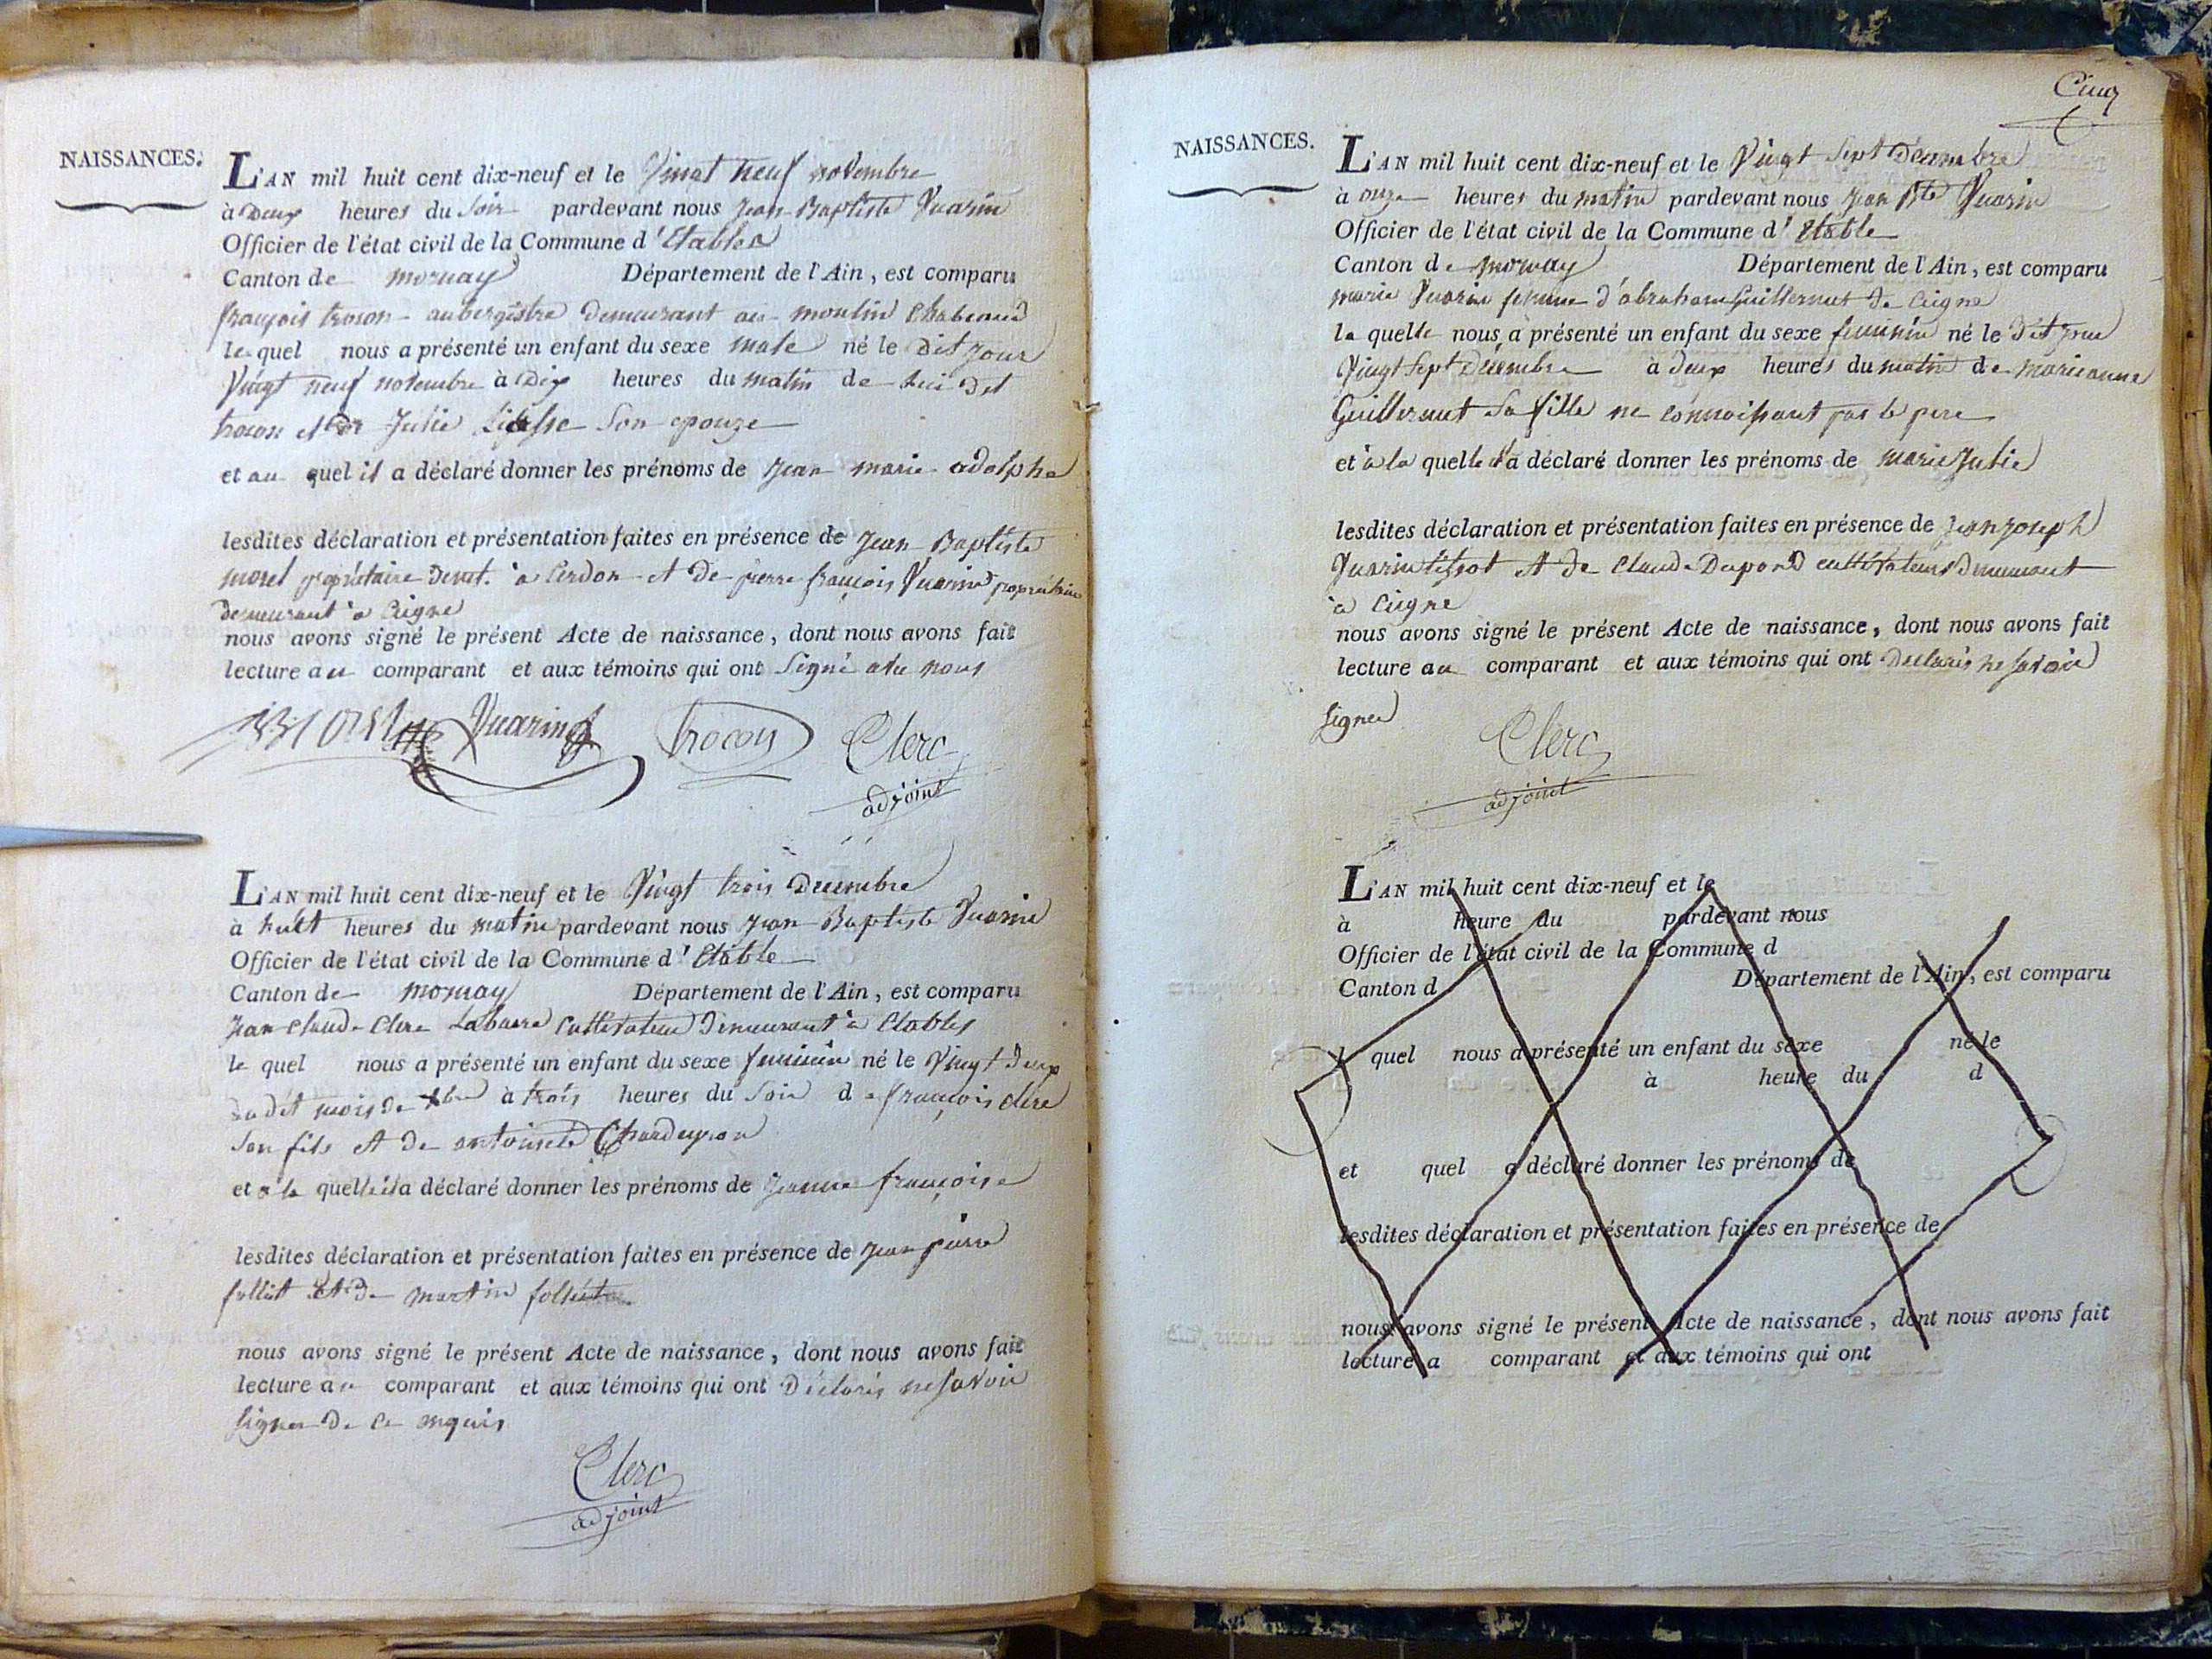 NAISSANCES.
L'AN mil huit cent dix-neuf et le Vingt neuf novembre
à Deux heures du Soir pardevant nous Jean Baptiste Vuarin
Officier de l'état civil de la Commune d'Etables
Canton de mornay Département de l'Ain, est comparu
françois trocon aubergistre demeurant au moulin Chabaud
le quel nous a présenté un enfant du sexe male né le dit jour
Vingt neuf novembre à Dix heures du matin de lui dit
trocon et de Julie son epouze
et au quel il a déclaré donner les prénoms de Jean marie adolphe
lesdites déclaration et présentation faites en présence de Jean Baptiste
morel propriétaire demt. à Cerdon et De pierre françois Vuarin propriétaire
demeurant à Ceigne
nous avons signé le présent Acte de naissance, dont nous avons fait
lecture au comparant et aux témoins qui ont Signé avec nous
Vuarin trocon Clerc
adjoint
L'AN mil huit cent dix-neuf et le Vingt trois Décembre
à huit heures du matin pardevant nous Jean Baptiste Vuarin
Officier de l'état civil de la Commune d'Etable
Canton de mornay Département de l'Ain, est comparu
Jean Claude Clerc Labarre Cultivateur Demeurant à Etables
le quel nous a présenté un enfant du sexe feminin né le Vingt deux
du dit mois de xbre à trois heures du Soir de françois clerc
son fils et De antoinete
et à la quelle il a déclaré donner les prénoms de Jeanne françoise
lesdites déclaration et présentation faites en présence de Jean pierre
folliet et De martin folliet
nous avons signé le présent Acte de naissance, dont nous avons fait
lecture au comparant et aux témoins qui ont Déclarés ne savoir
signer De ce enquis
Clerc
adjoint
Cinq
NAISSANCES.
L'AN mil huit cent dix-neuf et le Vingt Sept Decembre
à onze heures du matin pardevant nous Jean Bte Vuarin
Officier de l'état civil de la Commune d'Etable
Canton de mornay Département de l'Ain, est comparu
marie Vuarin femme d'abraham Guillermet de Ceigne
la quelle nous a présenté un enfant du sexe feminin né le dit jour
Vingt Sept Décembre à deux heures du matin de marieanne
Guillermet Sa fille ne connoissant pas le pere
et à la quelle a déclaré donner les prénoms de marie Julie
lesdites déclaration et présentation faites en présence de Jean joseph
Vuarin tissot et De Claude Dupond cultivateurs Demeurant
à Ceigne
nous avons signé le présent Acte de naissance, dont nous avons fait
lecture au comparant et aux témoins qui ont Declarés ne savoir
signer
Clerc
adjoint
L'AN mil huit cent dix-neuf et le
à heure du pardevant nous
Officier de l'état civil de la Commune d
Canton d Département de l'Ain, est comparu
l quel nous a présenté un enfant du sexe né le
à heure du d
et quel a déclaré donner les prénoms de
lesdites déclaration et présentation faites en présence de
nous avons signé le présent Acte de naissance, dont nous avons fait
lecture a comparant et aux témoins qui ont